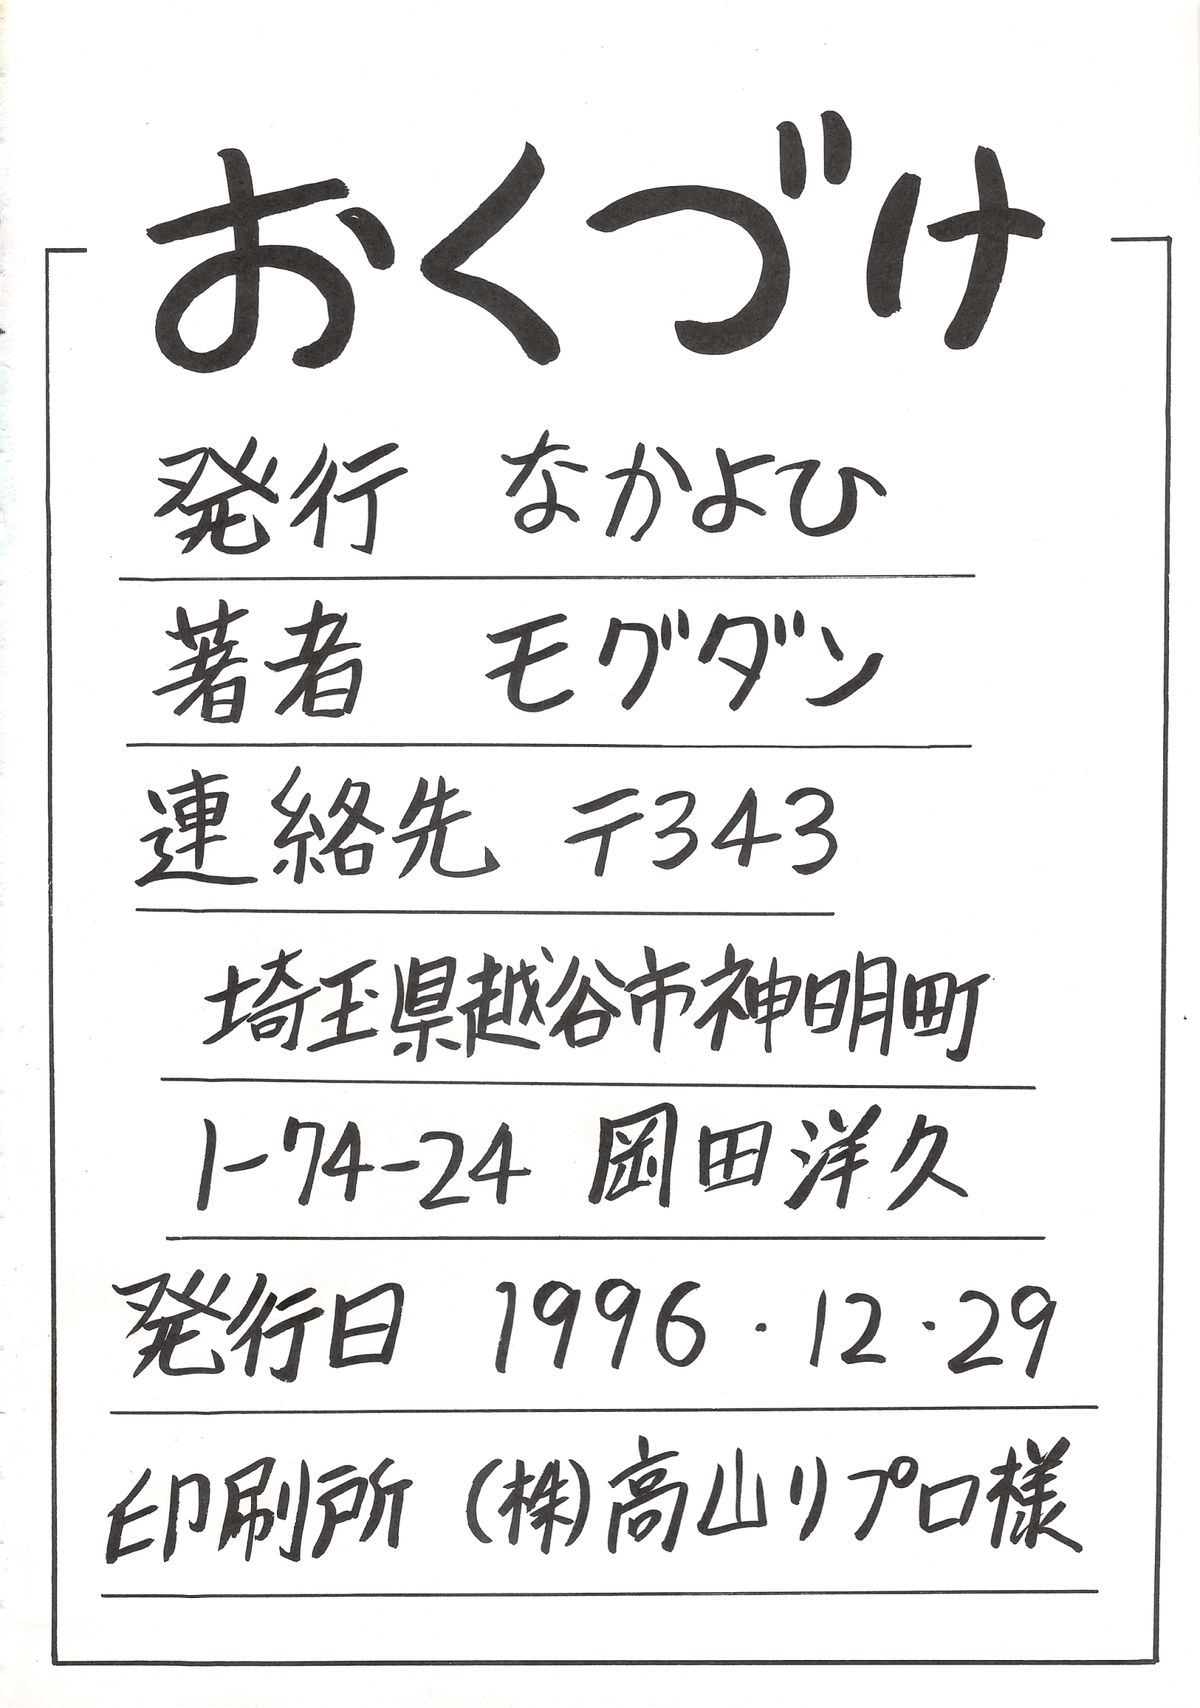 おくづけ
発行　なかよひ
著者　モグダン
連絡先　〒343
埼玉県越谷市神明町
1-74-24　岡田洋久
発行日　1996・12・29
印刷所　(株)高山リプロ様